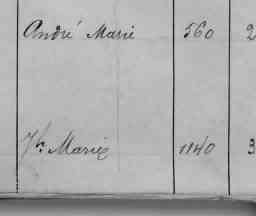 André Marie 560 2
Jh. Mariez 1140 3